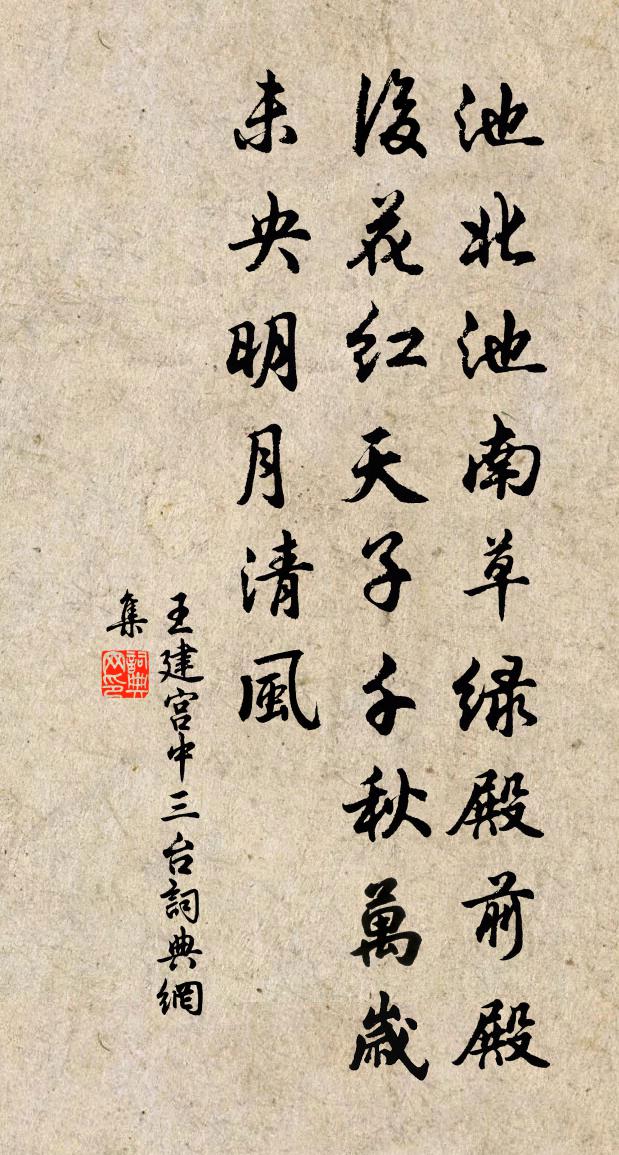 池北池南草绿殿前殿
後花红天子千秋萬歲
未央明月清風
王建宫中三台詞典網
集
詞典网印